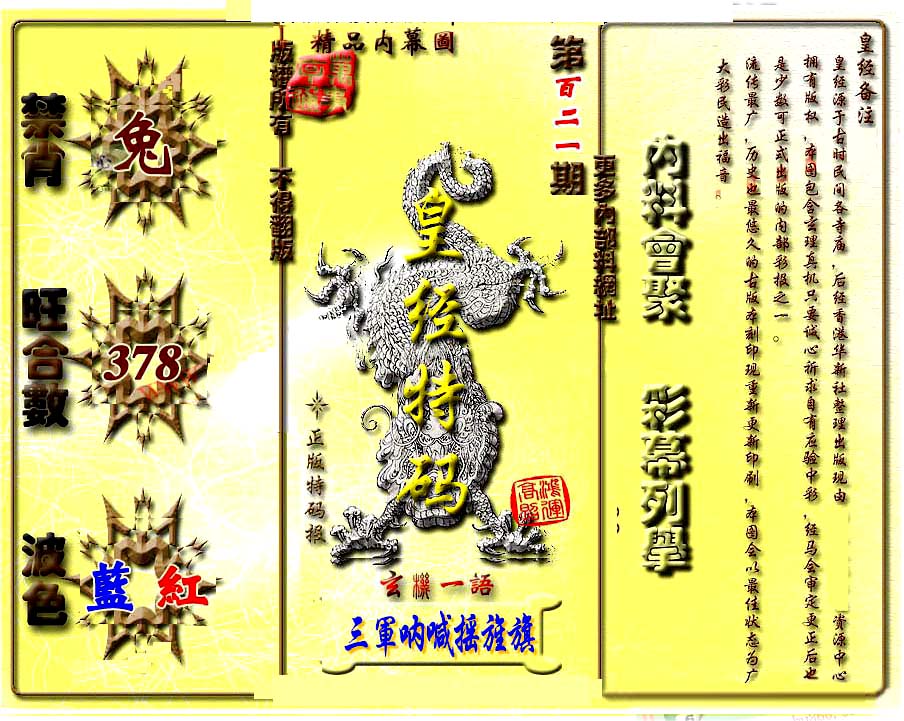 皇经备注
皇经源于古时民间各寺庙，后经香港华新社整理出版现由　资源中心
拥有版权，本图包含玄理真机只要诚心祈求自有应验中彩，经马会审定更正后也
是少数可正式出版的内部彩报之一。
流传最广，历史也最悠久的古版本刻印现重新更新印刷，本图会以最佳状态为广
大彩民造出福音
內料會聚
彩幕列擧
更多內部料網址
第百二一期
精品内幕圖
版權所有　不得翻版
皇经特码
正版特码报
鸿運
高照
玄機一語
三軍呐喊摇旌旗
禁肖
兔
旺合數
378
波色
藍 紅